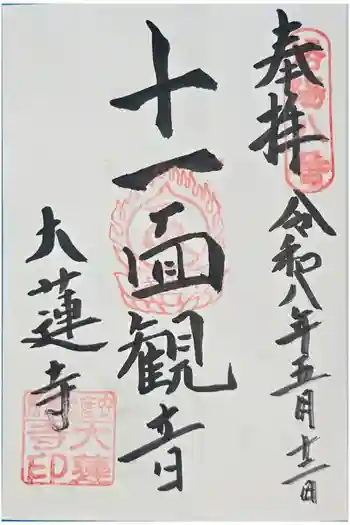 奉拝
令和八年五月
十一面観音
大蓮寺
大蓮
寺印